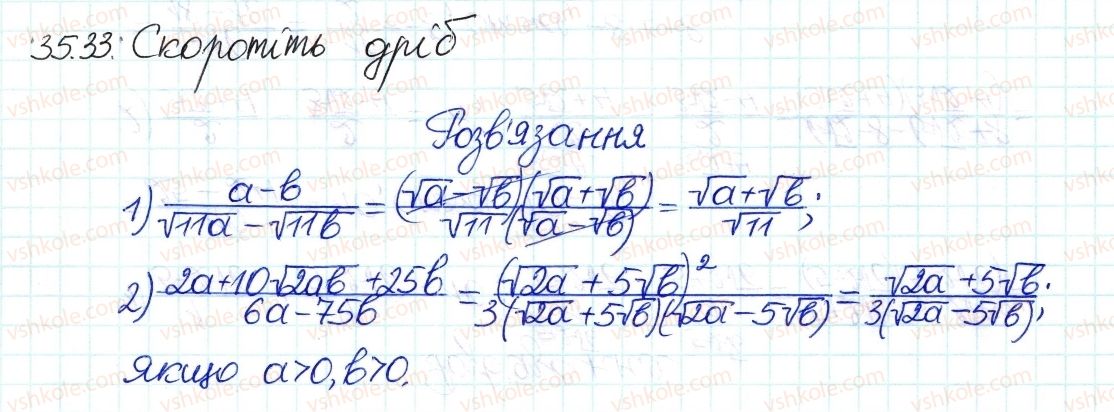 35.33. Скоротіть дріб
Розв'язання
1) (a-b)/(√11a - √11b) = ((√a - √b)(√a + √b))/(√11(√a - √b)) = (√a + √b)/√11;
2) (2a+10√2ab+25b)/(6a-75b) = (√2a + 5√b)²/(3(√2a + 5√b)(√2a - 5√b)) = (√2a + 5√b)/(3(√2a - 5√b));
якщо a>0, b>0.